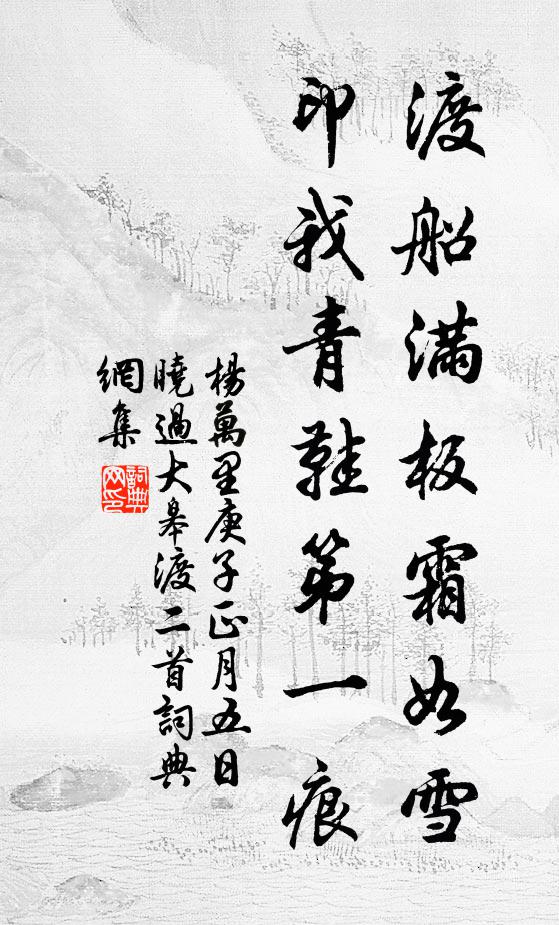 渡船滿板霜如雪
印我青鞋第一痕
楊萬里庚子正月五日
曉過大皋渡二首詞典
網集
詞典网印